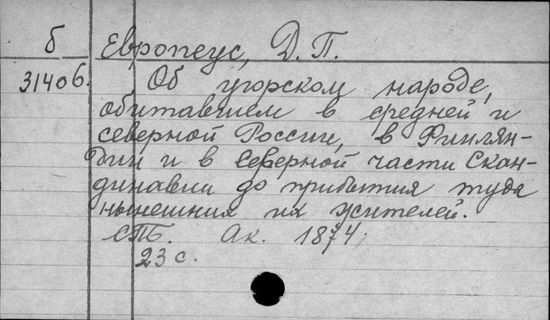 б Европеус, Д. П.
31406. Об угорском народе,
обитавшем в средней и
северной России, в Финлян-
дии и в северной части Скан-
динавии до прибытия туда
нынешних их жителей.
СПБ. Ак. 1874;
23 с.